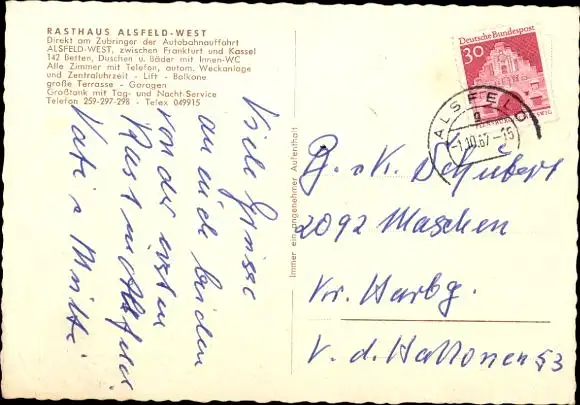 RASTHAUS ALSFELD-WEST
Direkt am Zubringer der Autobahnauffahrt
ALSFELD-WEST, zwischen Frankfurt und Kassel
142 Betten, Duschen u. Bäder mit Innen-WC
Alle Zimmer mit Telefon, autom. Weckanlage
und Zentraluhrzeit - Lift - Balkone
große Terrasse - Garagen
Großtank mit Tag- und Nacht-Service
Telefon 259-297-298 - Telex 049915
Viele Grüsse
an euch beiden
von der ersten
Rast in Alsfeld
Vati u. Mutti.
Immer ein angenehmer Aufenthalt
Deutsche Bundespost
30
ALSFELD
a
-1.10.67.-15
G. u. K. Schubert
2092 Maschen
Kr. Harbg.
V. d. Hallonen 53